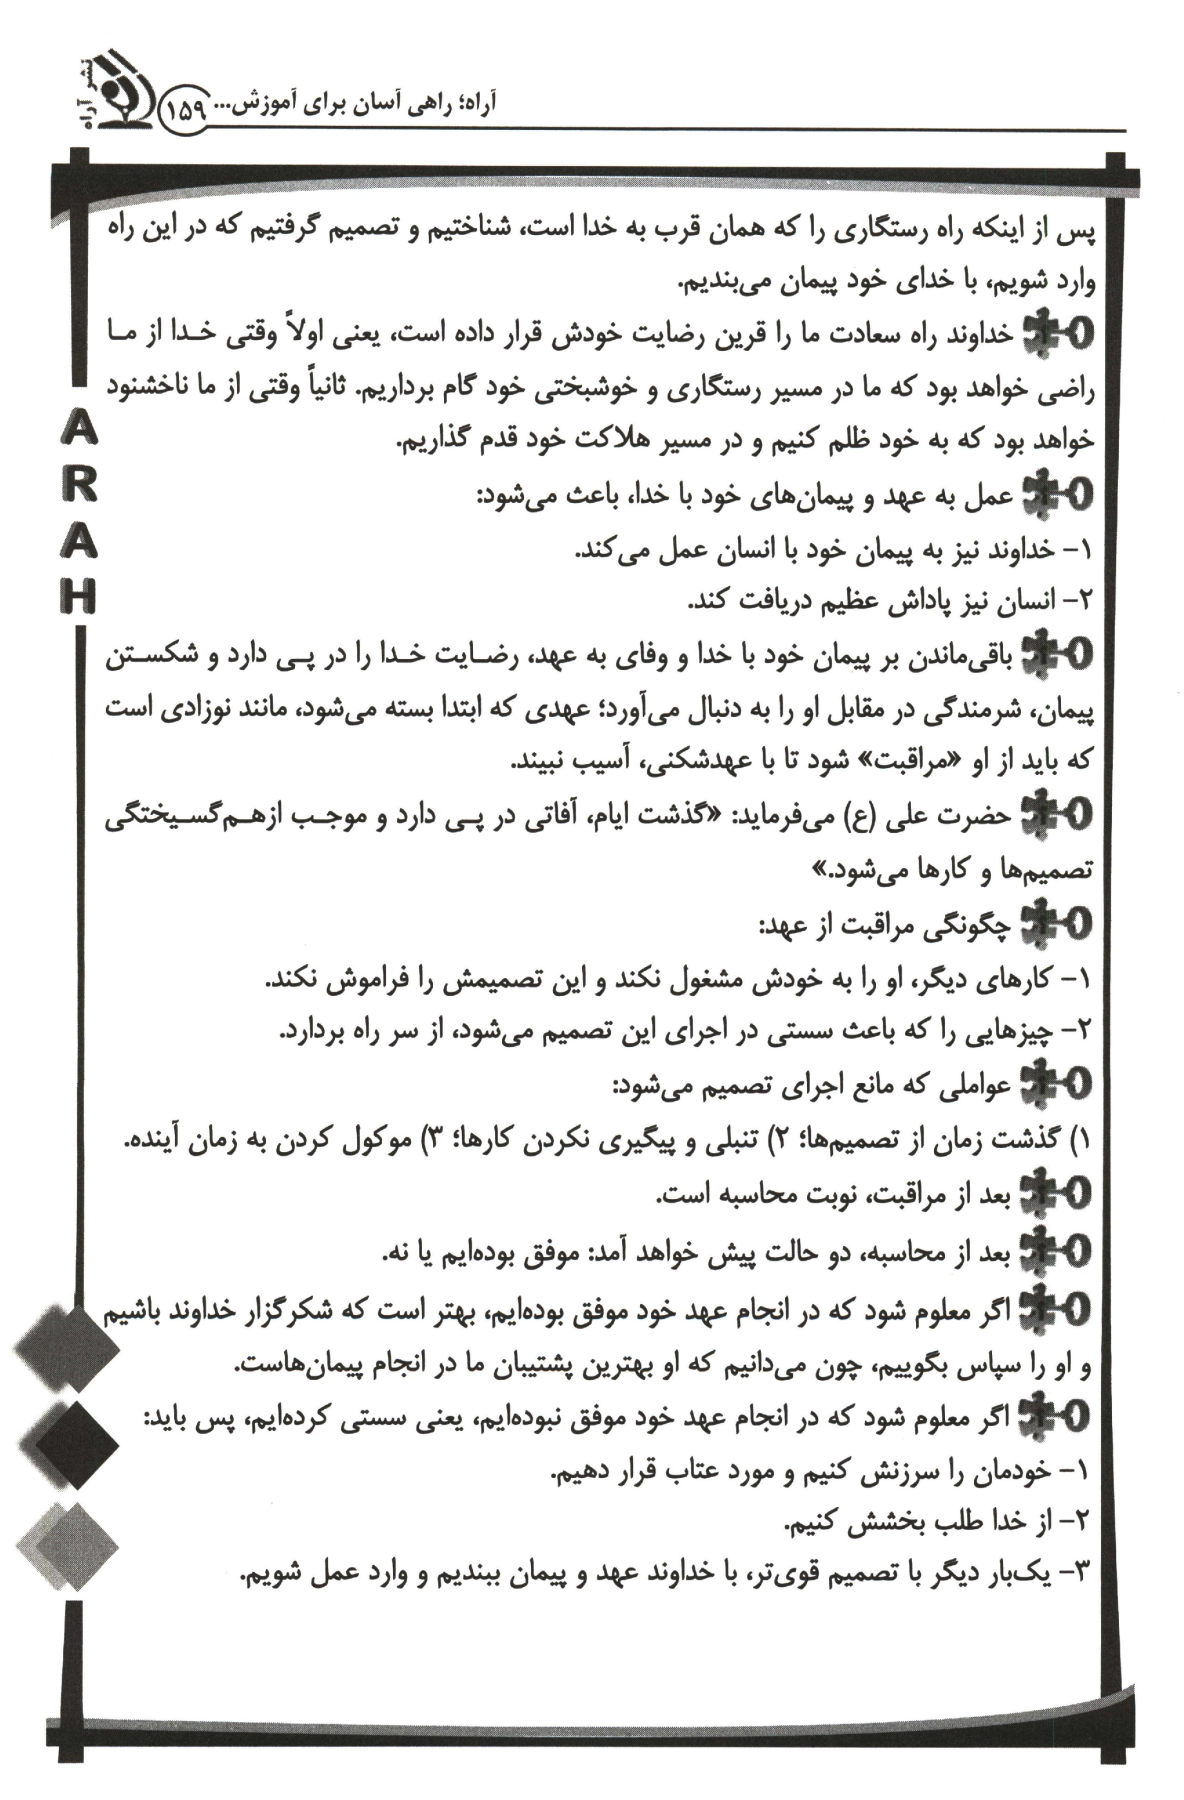 آراه؛ راهی آسان برای آموزش... ۱۵۹
نشر آراه
پس از اینکه راه رستگاری را که همان قرب به خدا است، شناختیم و تصمیم گرفتیم که در این راه
وارد شویم، با خدای خود پیمان می‌بندیم.
خداوند راه سعادت ما را قرین رضایت خودش قرار داده است، یعنی اولاً وقتی خـدا از مـا
راضی خواهد بود که ما در مسیر رستگاری و خوشبختی خود گام برداریم. ثانیاً وقتی از ما ناخشنود
خواهد بود که به خود ظلم کنیم و در مسیر هلاکت خود قدم گذاریم.
عمل به عهد و پیمان‌های خود با خدا، باعث می‌شود:
۱- خداوند نیز به پیمان خود با انسان عمل می‌کند.
۲- انسان نیز پاداش عظیم دریافت کند.
باقی‌ماندن بر پیمان خود با خدا و وفای به عهد، رضـایت خـدا را در پـی دارد و شکسـتن
پیمان، شرمندگی در مقابل او را به دنبال می‌آورد؛ عهدی که ابتدا بسته می‌شود، مانند نوزادی است
که باید از او «مراقبت» شود تا با عهدشکنی، آسیب نبیند.
حضرت علی (ع) می‌فرماید: «گذشت ایام، آفاتی در پـی دارد و موجـب ازهـم‌گسـیختگی
تصمیم‌ها و کارها می‌شود.»
چگونگی مراقبت از عهد:
۱- کارهای دیگر، او را به خودش مشغول نکند و این تصمیمش را فراموش نکند.
۲- چیزهایی را که باعث سستی در اجرای این تصمیم می‌شود، از سر راه بردارد.
عواملی که مانع اجرای تصمیم می‌شود:
۱) گذشت زمان از تصمیم‌ها؛ ۲) تنبلی و پیگیری نکردن کارها؛ ۳) موکول کردن به زمان آینده.
بعد از مراقبت، نوبت محاسبه است.
بعد از محاسبه، دو حالت پیش خواهد آمد: موفق بوده‌ایم یا نه.
اگر معلوم شود که در انجام عهد خود موفق بوده‌ایم، بهتر است که شکرگزار خداوند باشیم
و او را سپاس بگوییم، چون می‌دانیم که او بهترین پشتیبان ما در انجام پیمان‌هاست.
اگر معلوم شود که در انجام عهد خود موفق نبوده‌ایم، یعنی سستی کرده‌ایم، پس باید:
۱- خودمان را سرزنش کنیم و مورد عتاب قرار دهیم.
۲- از خدا طلب بخشش کنیم.
۳- یک‌بار دیگر با تصمیم قوی‌تر، با خداوند عهد و پیمان ببندیم و وارد عمل شویم.
A
R
A
H